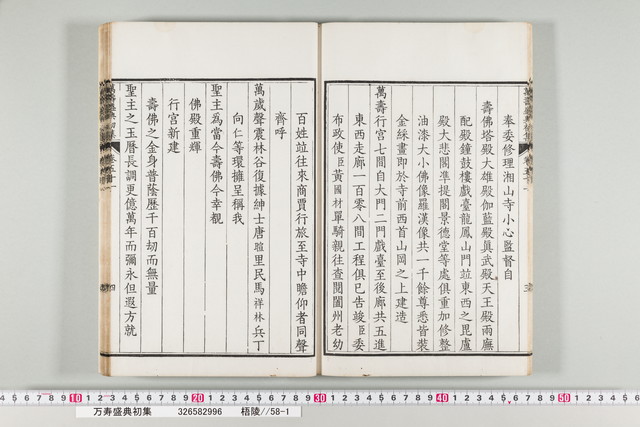 奉委修理湘山寺小心監督自
壽佛塔殿大雄殿伽藍殿眞武殿天王殿兩廡
配殿鐘鼓樓戲臺龍鳳山門竝東西之毘盧
殿大悲閣準提閣景德堂等處俱重加修整
油漆大小佛像羅漢像共一千餘尊悉皆裝
金綵畫卽於寺前西首山岡之上建造
萬壽行宮七間自大門二門戲臺至後廊共五進
東西走廊一百零八間工程俱已告竣臣委
布政使臣黃國材單騎親往查閱闔州老幼
百姓竝往來商賈行旅至寺中瞻仰者同聲
齊呼
萬歲聲震林谷復據紳士唐 里民馬祥林兵丁
向仁等環擁呈稱我
聖主爲當今壽佛今幸覩
佛殿重輝
行宮新建
壽佛之金身普蔭歷千百刧而無量
聖主之玉曆長調更億萬年而彌永但遐方就
四
10 20 30 40 50
万寿盛典初集 326582996 梧陵//58-1